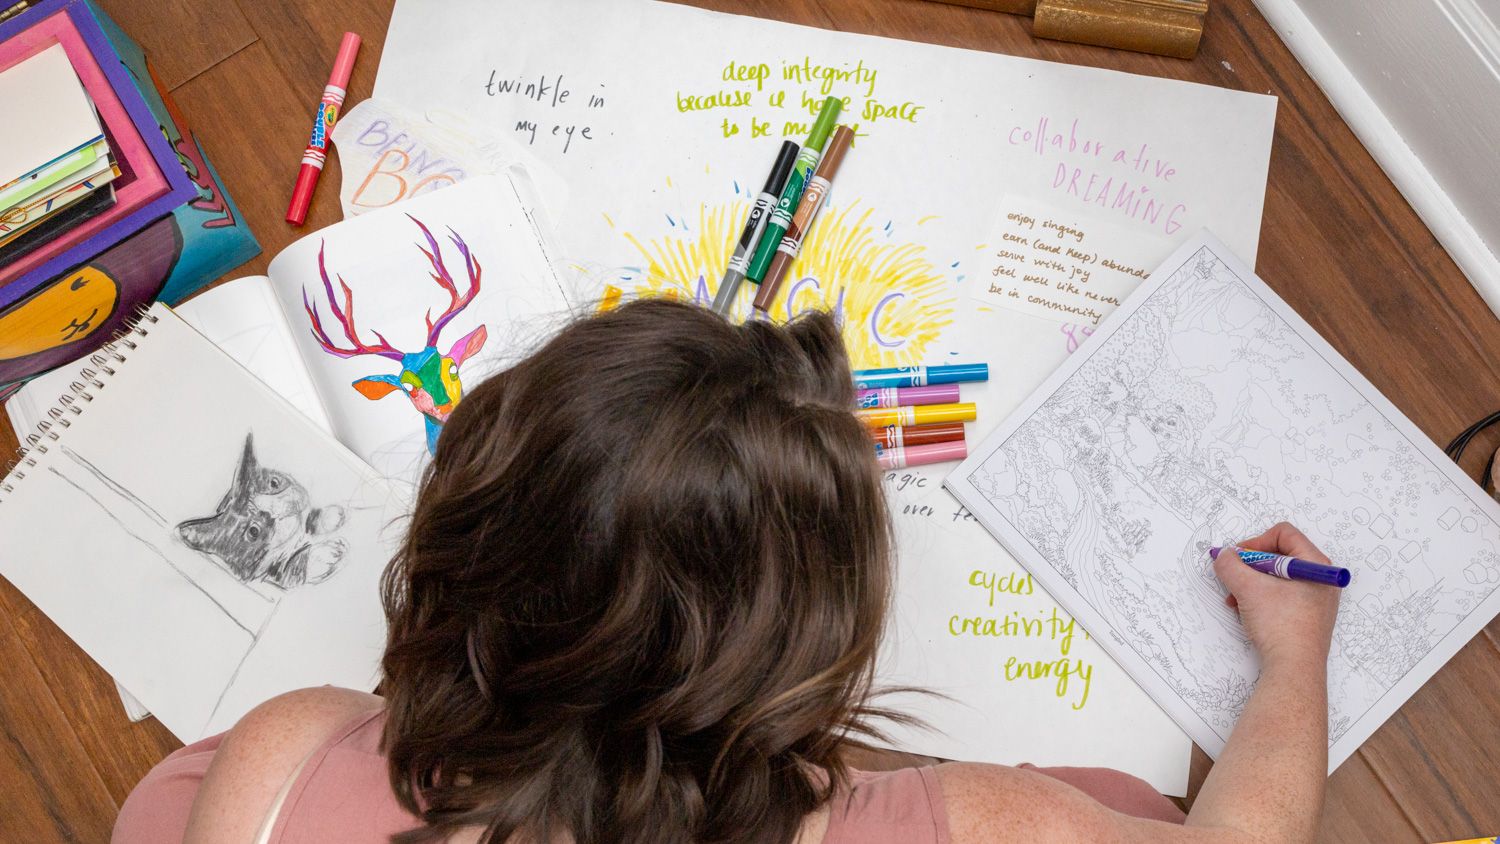 twinkle in
my eye.
deep integrity
because u have space
to be
BEING
collaborative
DREAMING
enjoy singing
earn (and keep)
serve with joy
feel well like never
be in community
MAGIC
over
cycles
creativity
energy